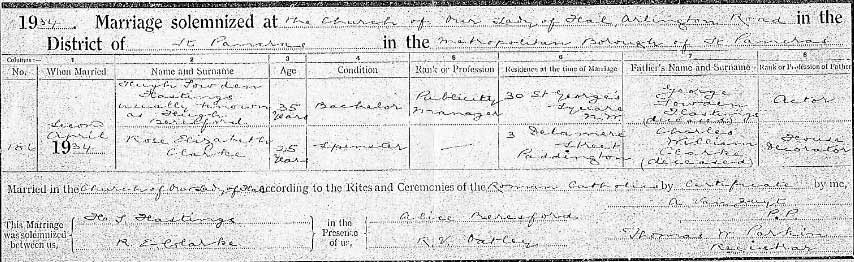 1934. Marriage solemnized at the Church of Our Lady of Hal Arlington Road in the
District of St Pancras in the Metropolitan Borough of St Pancras
Columns:— 1 2 3 4 5 6 7 8
No. When Married Name and Surname Age Condition Rank or Profession Residence at the time of Marriage Father's Name and Surname Rank or Profession of Father
186 Second April 1934
Hugh Sowden Hastings usually known as Hugh Beresford
35 Years
Bachelor
Publicity Manager
30 St George's Square N.W.
George Sowden Hastings (deceased)
Actor
Rose Elizabeth Clarke
35 Years
Spinster
—
3 Delamere Street Paddington
Charles William Clarke (deceased)
House Decorator
Married in the Church of Our Lady of Hal according to the Rites and Ceremonies of the Roman Catholics by Certificate by me,
This Marriage was solemnized between us,
H S Hastings
R E Clarke
in the Presence of us,
Alice Beresford
R. V. Oatley
P.P.
Thomas W Parkin
Registrar